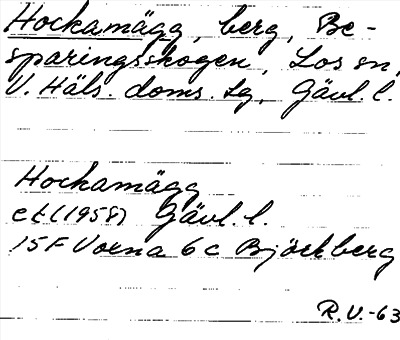 Hockamägg, berg, Be-
sparingsskogen, Los sn,
V. Häls. doms. lg, Gävl. l.
Hockamägg
ek (1958) Gävl. l.
15F Voxna 6c Björkberg
R.V.-63